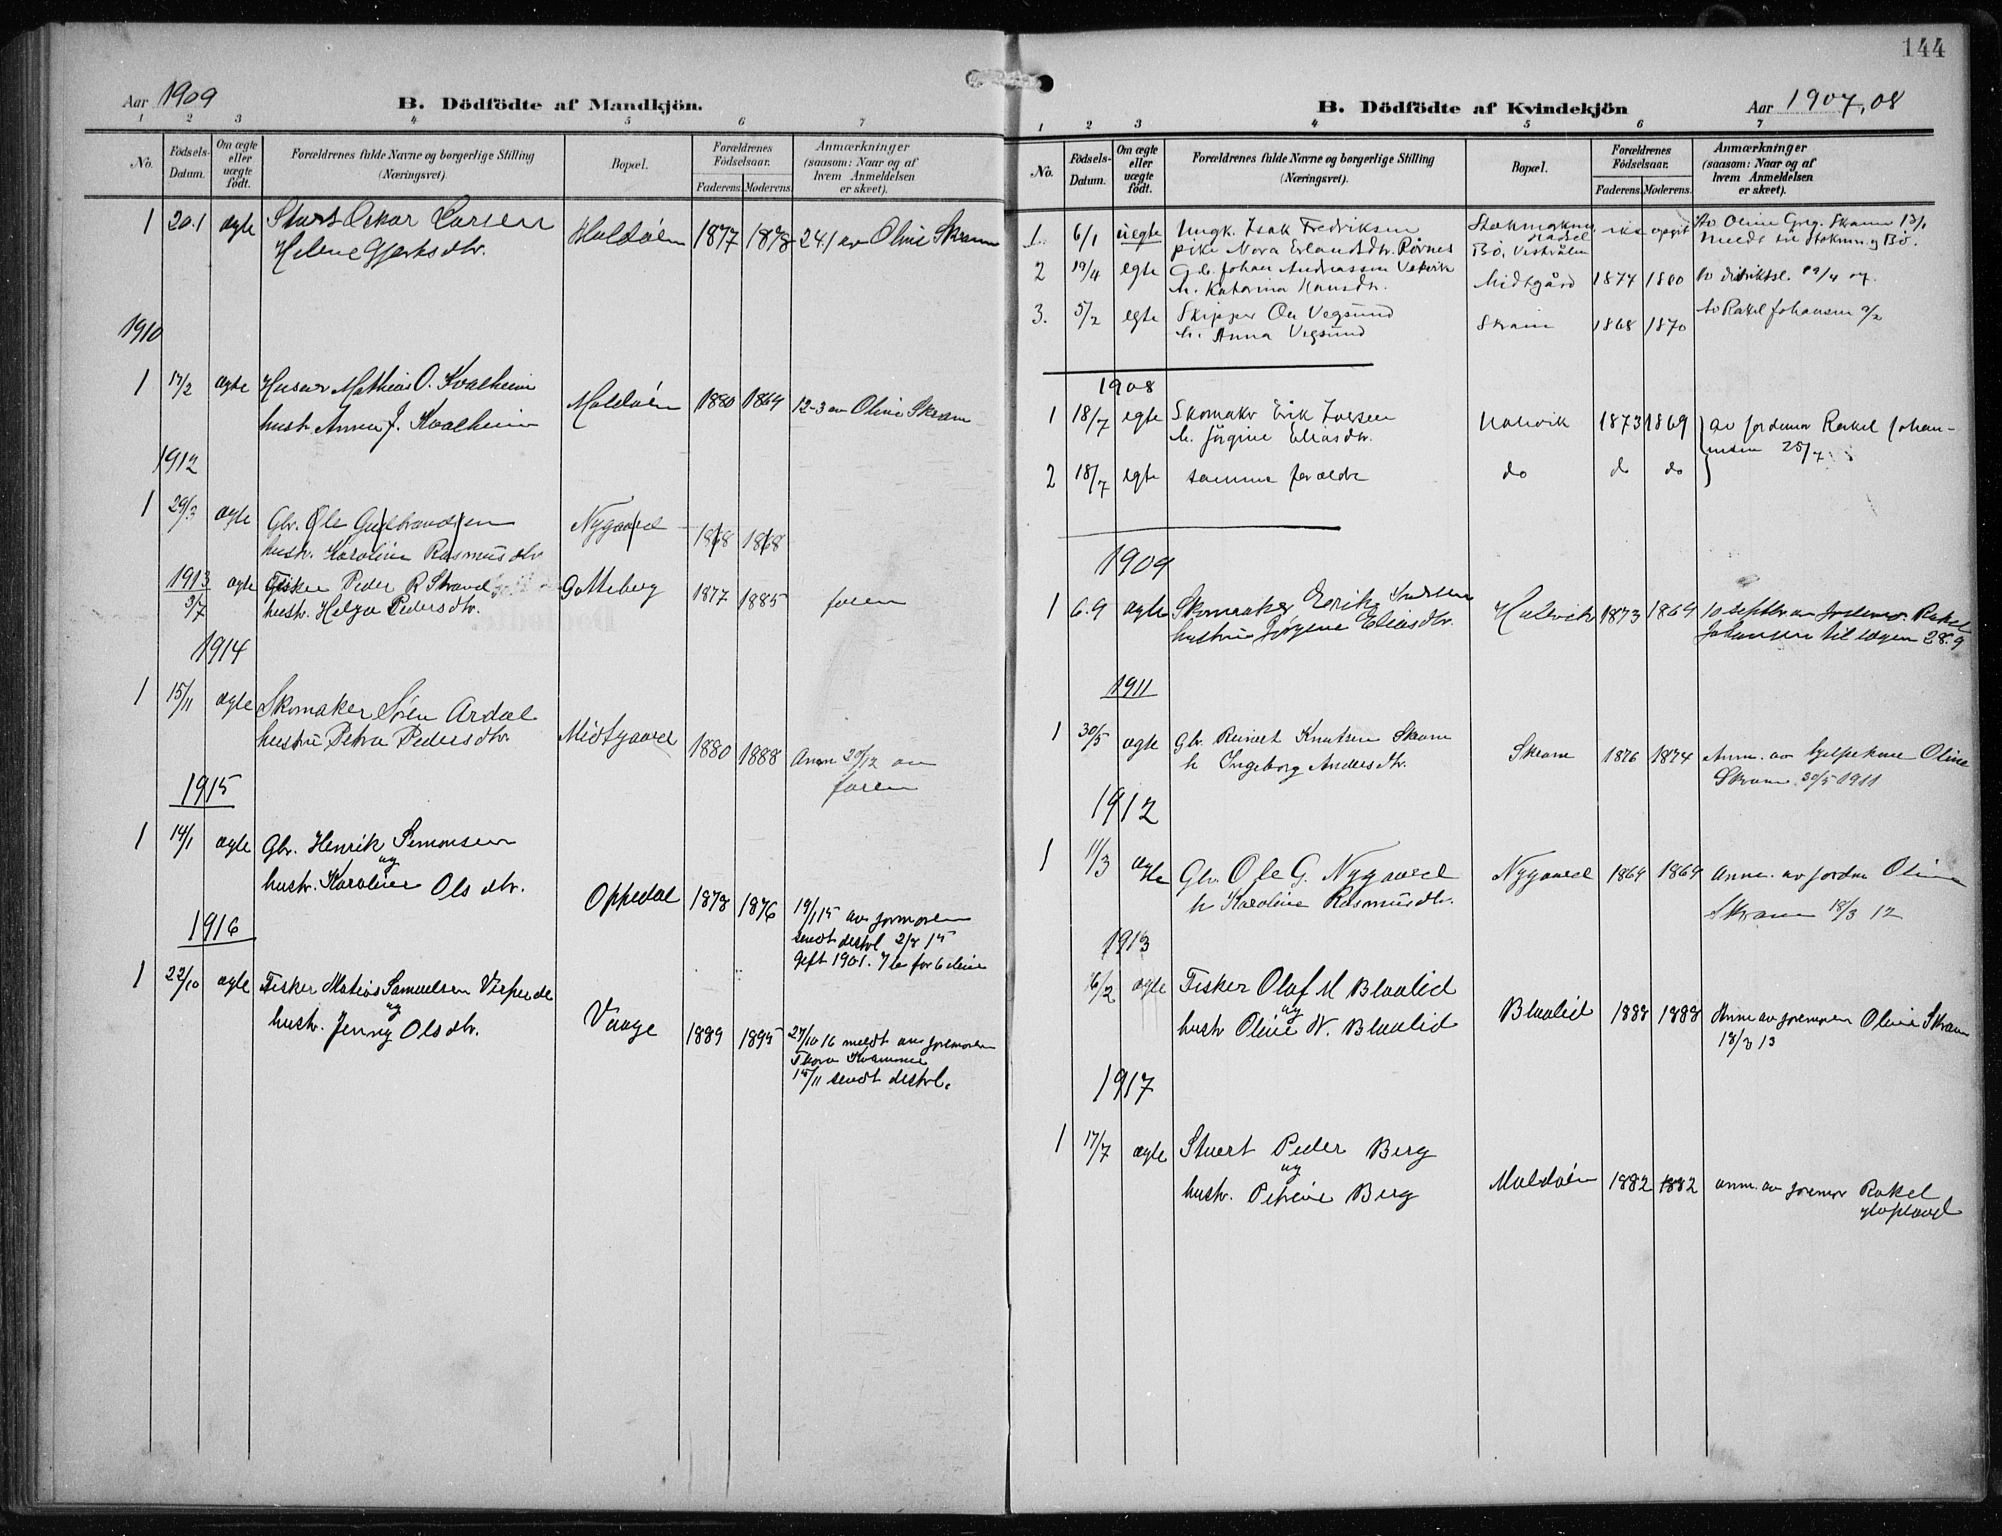 144
Aar 1909
B. Dödfödte af Mandkjön.
1 2 3 4 5 6 7
No.
Födsels-Datum.
Om ægte eller uægte födt.
Forældrenes fulde Navne og borgerlige Stilling (Næringsvei).
Bopæl.
Forældrenes Födselsaar.
Faderens. Moderens.
Anmærkninger (saasom: Naar og af hvem Anmeldelsen er skeet).
1 20.1 ægte Oskar Larsen Moldøen 1877 1878 24.1 av Oline Skram
Helene Gjertsdtr.
1910
1 17/2 ægte Mathias O. Kvalheim Moldøen 1880 1864 12-3 av Oline Skram
hust. Anna J. Kvalheim
1912
1 29/3 ægte Gbr. Ole Gudbrandsen Nygaard 1868 1868
hustr. Karoline Rasmusdtr.
1913
3/7 ægte Fisker Peder R Strand Gotteberg 1877 1885 faren
hustr. Helga Pedersdtr.
1914
1 15/11 ægte Skomaker Søren Ardal
hustru Petra Pedersdtr. Midtgaard 1880 1888 Anm 20/12 av
faren
1915
1 14/1 ægte Gbr. Henrik Simonsen
og
hustr. Karoline Olsdtr. Oppedal 1878 1876 19/1 15 av jormoren
sendt distrl 2/8 15
Gift 1901. 7 b
1916
1 22/10 ægte Fisker Matias Samuelsen
og
hustr. Jenny Olsdtr. Vaage 1889 1895 27/10 16 meldt av jormoren
Thora
15/11 sendt distrl.
B. Dödfödte af Kvindekjön
Aar 1907, 08
1 2 3 4 5 6 7
No.
Födsels-Datum.
Om ægte eller uægte födt.
Forældrenes fulde Navne og borgerlige Stilling (Næringsvei).
Bopæl.
Forældrenes Födselsaar.
Faderens. Moderens.
Anmærkninger (saasom: Naar og af hvem Anmeldelsen er skeet).
1. 6/1 uegte Ungk. Isak Fredriksen ikke opgit Av Oline Greg. Skram 13/1
pike Nora Erlandsdtr. Rørnes Bø, Vesterålen meldt til Stokmn. og Bø.
2 19/4 egte Gbr. Johan Andreassen Midtgård 1874 1880 Av distriktsl.
h. Katarina Hansdtr.
3. 5/2 egte Skipper Ole Vegsund Skram 1868 1870 Av Rakel Johansen 9/2
h. Anna Vegsund
1908
1 18/7 egte Skomakr Erik Iversen Halvik 1873 1869 av jordmor Rakel Johan-
h. Jørgine Eliasdtr. nsen 25/7
2 18/7 egte samme forældre do do do
1909
1 6.9 ægte Skomaker Eerik Iversen Halvik 1873 1869 10 septbr av jordemor Rakel
hustru Jørgine Eliasdtr. Johansen til lægen 28.9
1911
1 30/5 ægte Gbr. Reinert Knutsen Skram Skram 1876 1874 Anm. av hjelpekone Oline
h Ingeborg Andersdtr. Skram 30/5 1911
1912
1 11/3 ægte Gbr. Ole G. Nygaard Nygaard 1869 1869 Anm. av jordm Oline
h Karoline Rasmusdtr. Skram 18/3 12
1913
16/2 ægte Fisker Olaf M Blaalid
og
hustr Oline N. Blaalid Blaalid 1888 1888 Anm av jormoren Oline Skram
18/3 13
1917
1 17/7 ægte Stuert Peder Berg
og
hustr. Petrine Berg Moldøen 1882 1882 anm. av jormor Rakel